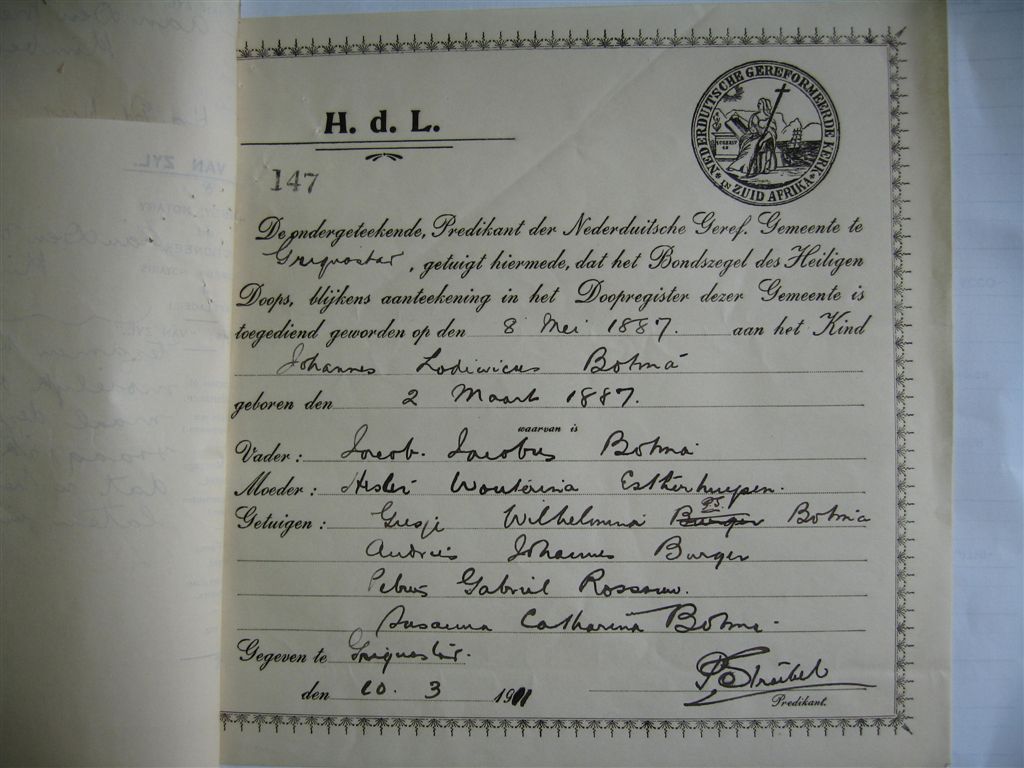 NEDERDUITSCHE GEREFORMEERDE KERK
IN ZUID AFRIKA
H. d. L.
147
De ondergeteekende, Predikant der Nederduitsche Geref. Gemeente te
Griquastad, getuigt hiermede, dat het Bondszegel des Heiligen
Doops, blijkens aanteekening in het Doopregister dezer Gemeente is
toegediend geworden op den 8 Mei 1887. aan het Kind
Johannes Lodewicus Botma
geboren den 2 Maart 1887.
waarvan is
Vader: Jacob. Jacobus Botma
Moeder: Hester Wouterina Estherhuysen.
Getuigen: Wilhelmina Burger Botma
Andries Johannes Burger
Petrus Gabriel Rossouw.
Susanna Catharina Botma.
Gegeven te Griquastad.
den 20. 3 1911
Predikant.
VAN ZYL.